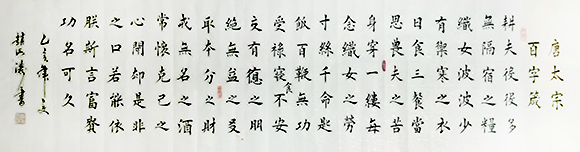 唐太宗
百字箴
耕夫役役多
無隔宿之糧
織女波波少
有禦寒之衣
日食三餐當
思農夫之苦
身穿一縷每
念織女之勞
寸絲千命匙
飯百鞭無功
受祿寢食不安
交有德之朋
絕無益之友
取本分之財
戒無名之酒
常懷克己之
心閉却是非
之口若能依
朕斯言富貴
功名可久
乙亥年
書